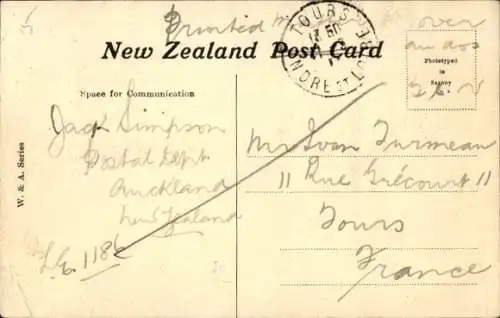 over
TOURS
INDRE ET LOIRE
New Zealand Post Card
Phototyped
in
Saxony
Space for Communication
W. & A. Series
Jack Simpson
Postal Dept
Auckland
New Zealand
1186
Mr Ivan Turmeau
11 Rue Grécourt 11
Tours
France